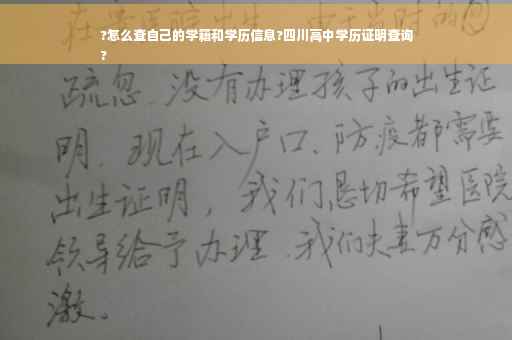 在妇产医院出生,由于当时
?怎么查自己的学籍和学历信息?四川高中学历证明查询
?
疏忽.没有办理孩子的出生证
明.现在入户口、防疫都需要
出生证明,我们恳切希望医院
领导给予办理.我们夫妻万分感
激。